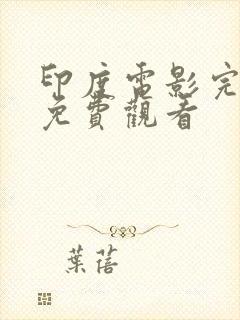 印度電影完
免費觀看
葉蓓